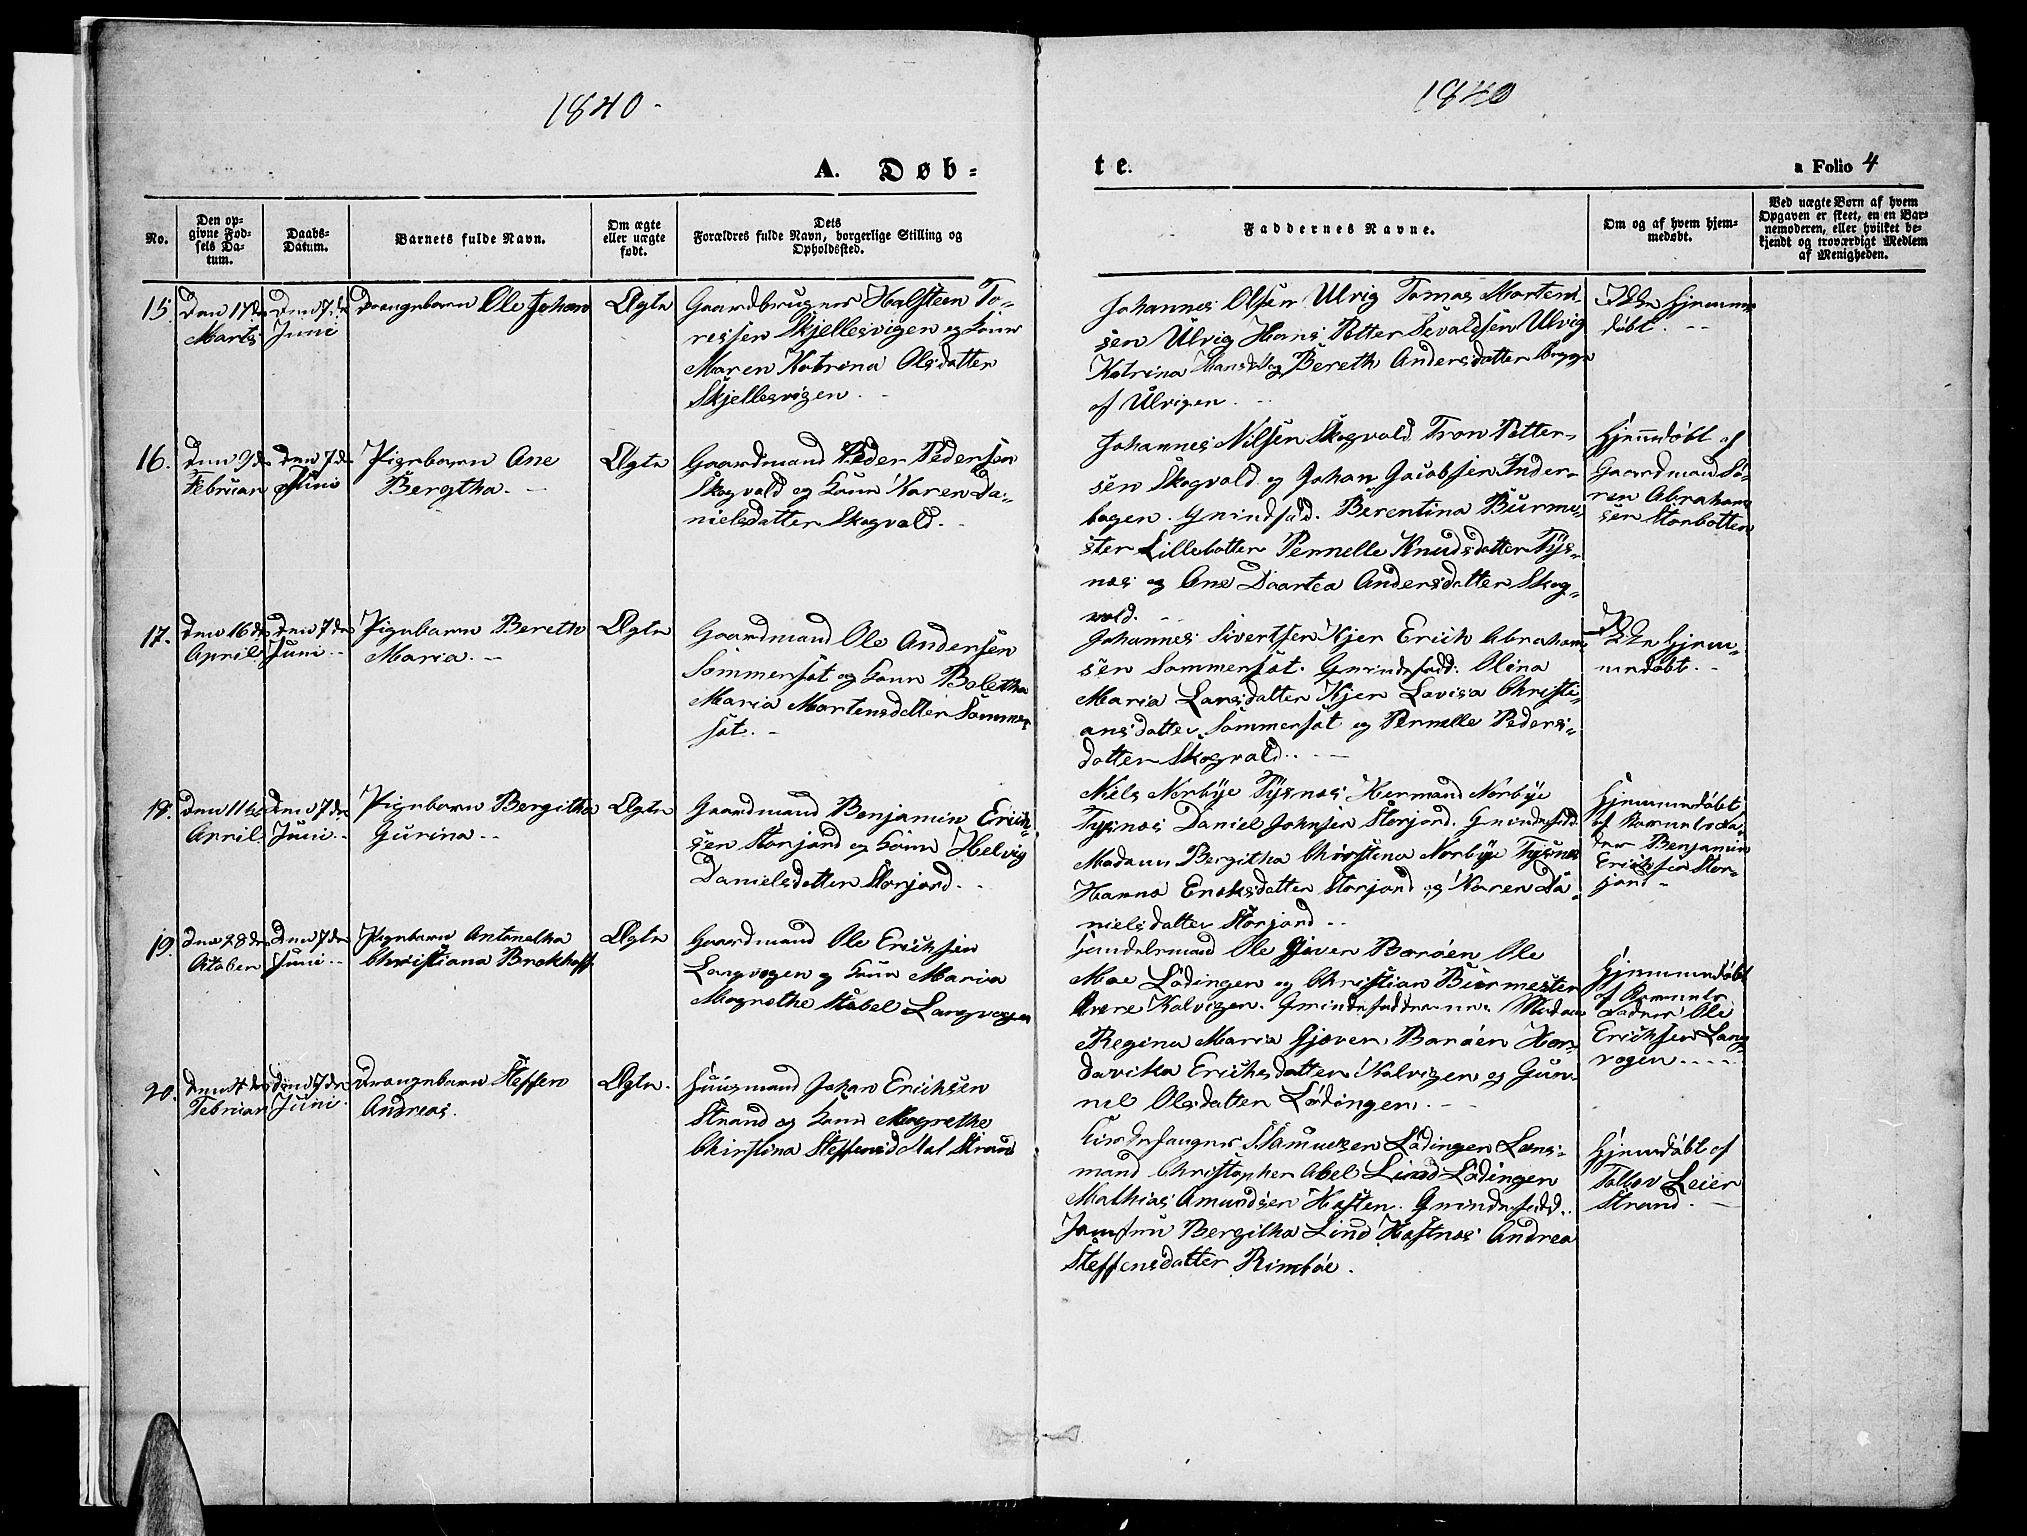 1840
1840
A. Døb-
te.
a Folio 4
No.
Den op-
givne Fød-
sels Da-
tum.
Daabs-
Datum.
Barnets fulde Navn.
Om ægte
eller uægte
født.
Dets
Forældres fulde Navn, borgerlige Stilling og
Opholdssted.
Faddernes Navne.
Om og af hvem hjem-
medøbt.
Ved uægte Børn af hvem
Opgaven er skeet, en en Bar-
nemoderen, eller hvilket be-
kjendt og troværdigt Medlem
af Menigheden.
15.
Den 17de
Marts
Den 7de
Juni
Drengebarn Ole Johan
Ægte
Gaardbruger Halsteen To-
ressen Skjellesvigen og Kone
Maren Katrina Olsdatter
Skjellesvigen.
Johannes Olsen Ulvig Tomas Mortens
sen Ulvig Hans Petter Sivaldsen Ulvig
Katrina Hansd. og Bereth Andersdatter begge
af Ulvigen.
Ikke hjemme-
døbt.
16.
Den 9de
Februar
Den 7de
Juni
Pigebarn Ane
Bergtha.
Ægte
Gaardmand Peder Pedersen
Skogvold og Kone Karen Da-
nielsdatter Skogvold.
Johannes Nilsen Skogvold Tron Petter-
sen Skogvold og Johan Jacobsen Inder-
bogen. Qvindfad. Berentina Burme-
ster Lillebotten Pernelle Knudsdatter Tys-
nes og Ane Daartea Andersdatter Skog-
vold.
Hjemdøbt af
Gaardmand Sø-
ren Abraham
sen Storbotten
17.
Den 16de
April
Den 7de
Juni
Pigebarn Bereth
Maria.
Ægte
Gaardmand Ole Andersen
Sommersæt og Kone Boletha
Maria Mortensdatter Sommer
sæt.
Johannes Sivertsen Kjer Erich Abraham
sen Sommersæt. Qvindefadd. Olina
Maria Larsdatter Kjer Lovisa Christi-
ansdatter Sommersæt og Pernelle Peders-
datter Skogvold.
Ikke hjem-
medøbt.
18.
Den 11te
April
Den 7de
Juni
Pigebarn Bergitha
Gurina.
Ægte
Gaardmand Benjamin Erich-
sen Storjord og Kone Helvig
Danielsdatter Storjord.
Niels Norbye Tysnes Hermand Norbye
Tysnes Daniel Johnsen Storjord. Qvindefadd.
Madam Bergitha Christina Norbye Tysnes
Hanna Eriksdatter Storjord og Karen Da-
nielsdatter Storjord
Hjemmedøbt
af Barnets Fa-
der Benjamin
Erichsen Stor-
jord.
19.
Den 28de
October
Den 7de
Juni
Pigebarn Antonetha
Christiana Brokhoff
Ægte
Gaardmand Ole Erichsen
Langvogen og Kone Maria
Magrethe Stabel Langvogen
Handelsmand Ole Gjæver Barøen Ole
Moe Lødingen og Christian Burmester
Kalvigen. Qvindefadderne. Madam
Regina Maria Gjæver, Barøen
Erichsdatter Kalvigen og Gun-
nel Olsdatter Lødingen.
Hjemmedøbt
af Barnets
Fader Ole
Erichsen Lang
vogen
20.
Februar
Den 7de
Juni
Drengebarn Steffen
Andreas.
Ægte.
Huusmand Johan Erichsen
Strand og Kone Magrethe
Christina Steffensd Strand
Kirkesanger Lødingen Lens-
mand Christopher Abel Lind Lødingen
Mathias Amundsen. Qvindefadd.
Jomfru Bergitha Lind Andrea
Steffensdatter Rinbøe.
Hjemdøbt af
Leier
Strand.